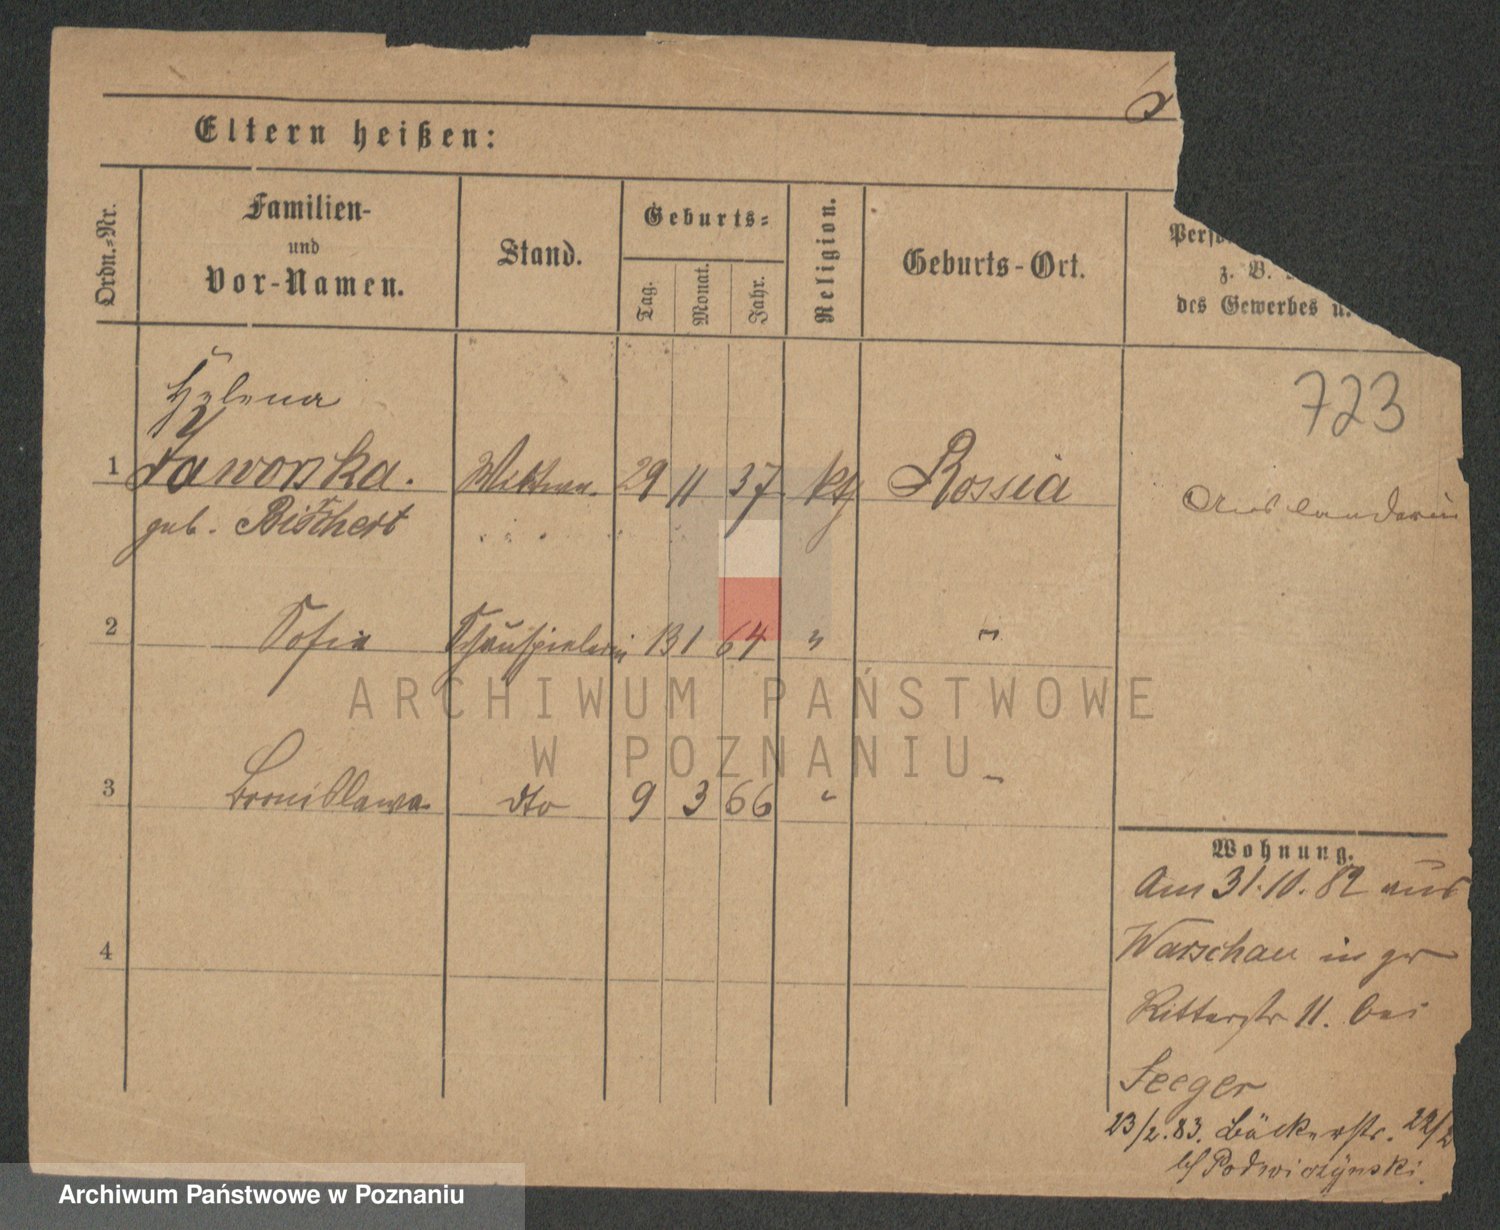 Eltern heißen:
Ordn.-Nr.
Familien-
und
Vor-Namen.
Stand.
Geburts-
Tag.
Monat.
Jahr.
Religion.
Geburts-Ort.
z. B.
des Gewerbes u.
723
Helena
1 Jaworska. Wittwe. 29 11 37 ktf Rossia Ausländerin
geb. Bischert
2 Sofie Schauspielerin 13 1 64 " "
3 Bronislawa dto 9 3 66 " "
4
Wohnung.
Am 31.10.82 aus
Warschau in gr
Ritterstr 11. bei
Seeger
23/2.83. Bäckerstr. 22/2
bei Podwiczynski.
ARCHIWUM PAŃSTWOWE
W POZNANIU
Archiwum Państwowe w Poznaniu